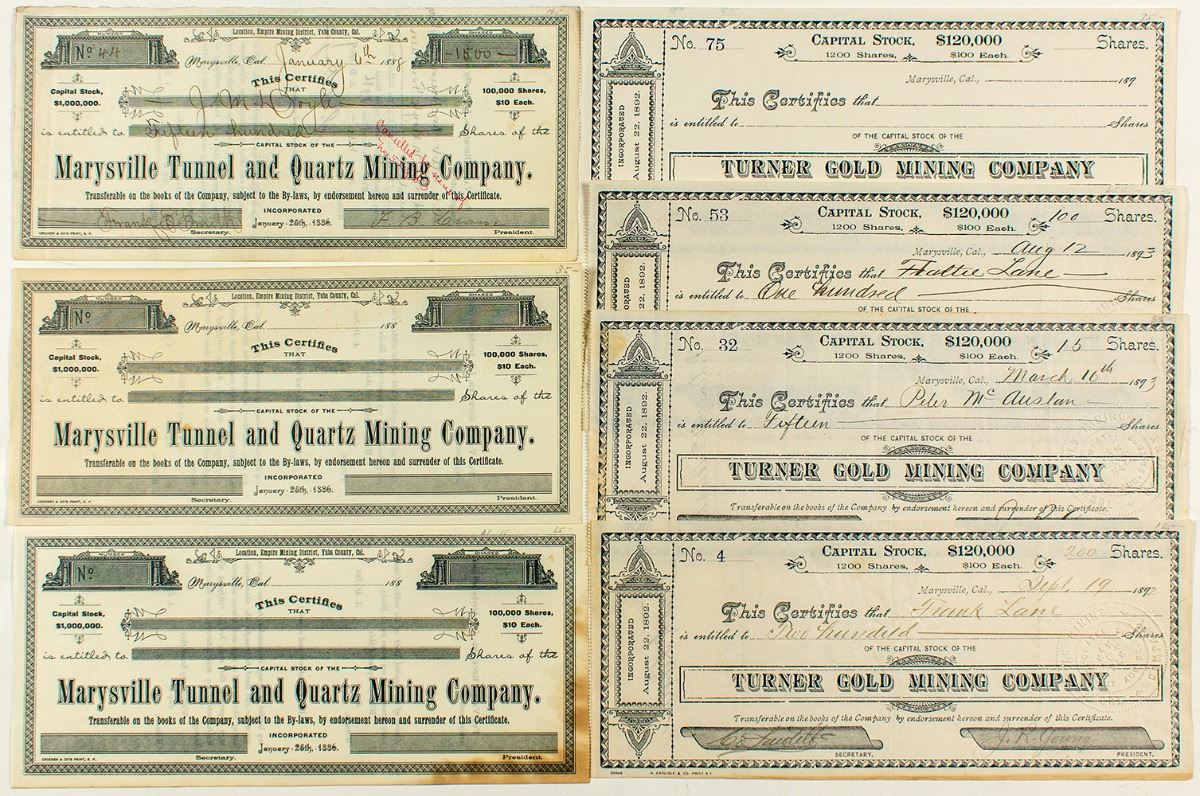 Location, Empire Mining District, Yuba County, Cal.
NUMBER
No 44
SHARES
-1500-
Marysville, Cal. January 6th 1888
Capital Stock,
$1,000,000.
This Certifies
THAT
100,000 Shares,
$10 Each.
J. M. Doyle
is entitled to Fifteen hundred Shares of the
CAPITAL STOCK OF THE
Cancelled
Marysville Tunnel and Quartz Mining Company.
Transferable on the books of the Company, subject to the By-laws, by endorsement hereon and surrender of this Certificate.
INCORPORATED
January 26th, 1886.
Frank
Secretary.
E B
President.
CROCKER & CO'S PRINT, S. F.
Location, Empire Mining District, Yuba County, Cal.
NUMBER
No
SHARES
Marysville, Cal. 188
Capital Stock,
$1,000,000.
This Certifies
THAT
100,000 Shares,
$10 Each.
is entitled to Shares of the
CAPITAL STOCK OF THE
Marysville Tunnel and Quartz Mining Company.
Transferable on the books of the Company, subject to the By-laws, by endorsement hereon and surrender of this Certificate.
INCORPORATED
January 26th, 1886.
Secretary.
President.
CROCKER & CO'S PRINT, S. F.
Location, Empire Mining District, Yuba County, Cal.
NUMBER
No
SHARES
Marysville, Cal. 188
Capital Stock,
$1,000,000.
This Certifies
THAT
100,000 Shares,
$10 Each.
is entitled to Shares of the
CAPITAL STOCK OF THE
Marysville Tunnel and Quartz Mining Company.
Transferable on the books of the Company, subject to the By-laws, by endorsement hereon and surrender of this Certificate.
INCORPORATED
January 26th, 1886.
Secretary.
President.
CROCKER & CO'S PRINT, S. F.
No. 75 CAPITAL STOCK, $120,000 Shares.
1200 Shares, $100 Each.
Marysville, Cal., 189
This Certifies that
is entitled to Shares
OF THE CAPITAL STOCK OF THE
TURNER GOLD MINING COMPANY
INCORPORATED
August 22, 1892.
No. 53 CAPITAL STOCK, $120,000 100 Shares.
1200 Shares, $100 Each.
Marysville, Cal., Aug 12 1893
This Certifies that Hattie Lane
is entitled to One hundred Shares
OF THE CAPITAL STOCK OF THE
ORATED
22, 1892.
No. 32 CAPITAL STOCK, $120,000 15 Shares.
1200 Shares, $100 Each.
Marysville, Cal., March 16th 1893
This Certifies that Peter McAuslan
is entitled to Fifteen Shares
OF THE CAPITAL STOCK OF THE
TURNER GOLD MINING COMPANY
Transferable on the books of the Company by endorsement hereon and surrender of this Certificate.
INCORPORATED
August 22, 1892.
No. 4 CAPITAL STOCK, $120,000 200 Shares.
1200 Shares, $100 Each.
Marysville, Cal., Sept. 19 1892
This Certifies that Frank Lane
is entitled to Two hundred Shares
OF THE CAPITAL STOCK OF THE
TURNER GOLD MINING COMPANY
Transferable on the books of the Company by endorsement hereon and surrender of this Certificate.
INCORPORATED
August 22, 1892.
J. R. Young
SECRETARY.
PRESIDENT.
A. CARLISLE & CO. PRINT S F